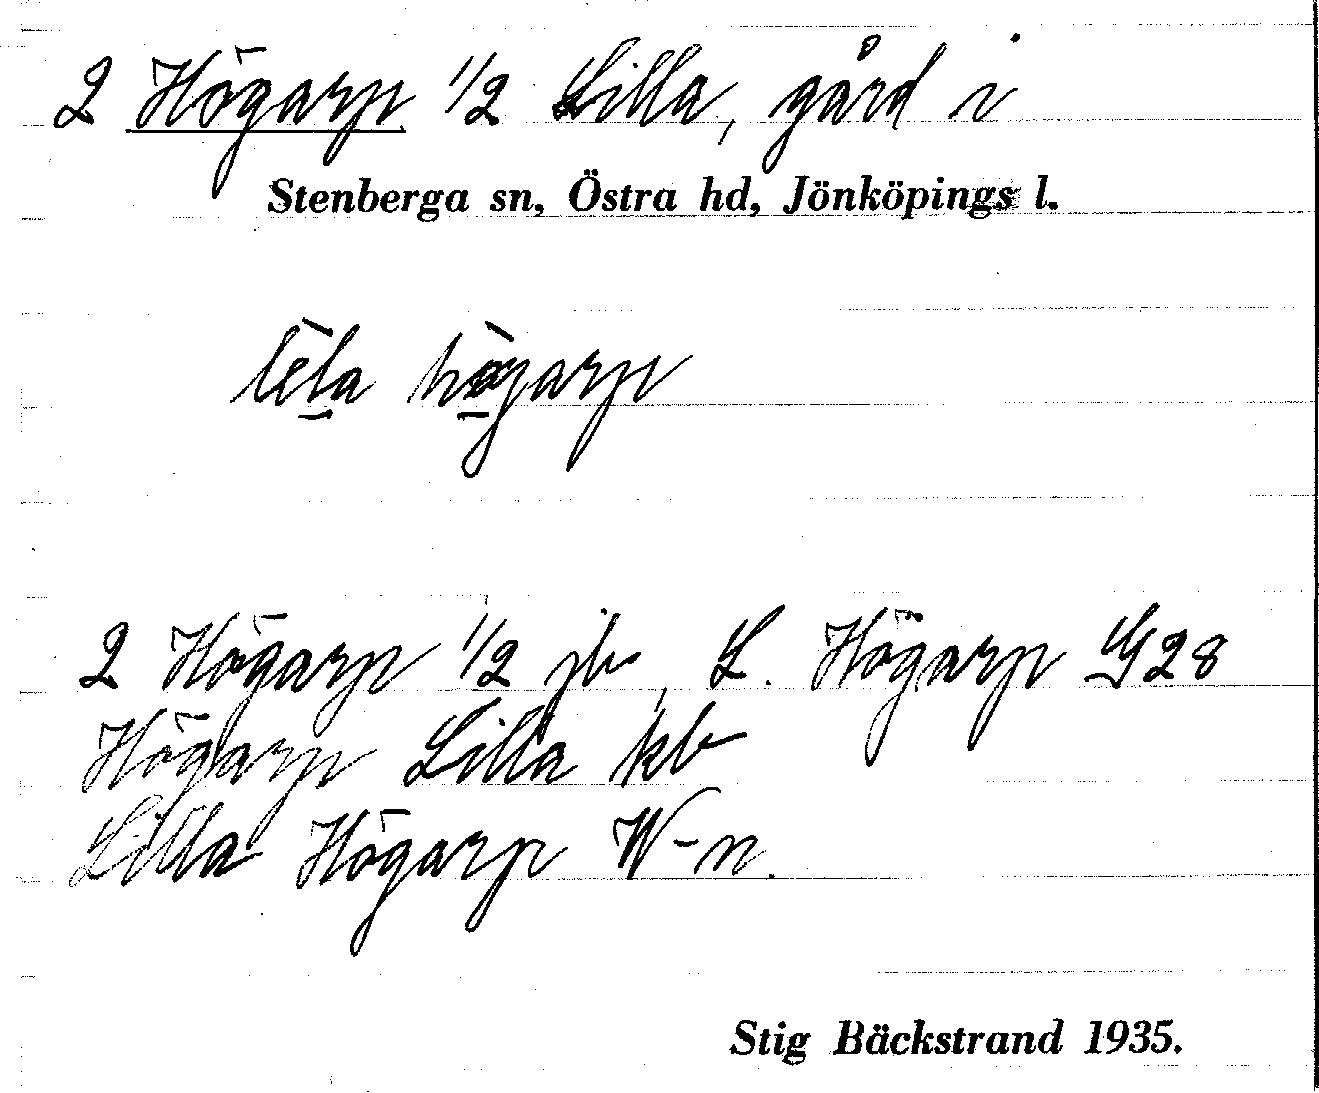 2 Högarp 1/2 Lilla, gård i
Stenberga sn, Östra hd, Jönköpings l.
högarp
2 Högarp 1/2 jb, L. Högarp G28
Högarp Lilla kb
Lilla Högarp W-n.
Stig Bäckstrand 1935.